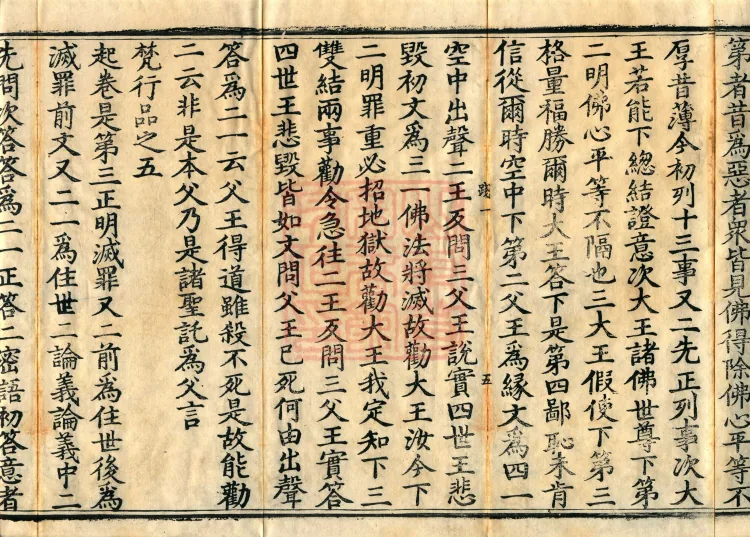 第者昔為惡者眾皆見佛得除佛心平等不
厚昔薄今初列十三事又二先正列事次大
王若能下總結證意次大王諸佛世尊下第
二明佛心平等不隔也三大王假使下第三
格量福勝爾時大王答下是第四鄙恥未肯
信從爾時空中下第二父王為緣文為四一
空中出聲二王反問三父王說實四世王悲
毀初文為三一佛法將滅故勸大王汝今下
二明罪重必招地獄故勸大王我定知下三
雙結兩事勸令急往二王反問三父王實答
四世王悲毀皆如文問父王已死何由出聲
答為二一云父王得道雖殺不死是故能勸
二云非是本父乃是諸聖託為父言
梵行品之五
起卷是第三正明滅罪又二前為住世後為
滅罪前文又二一為住世二論義論義中二
先問次答答為二一正答二密語初答意者